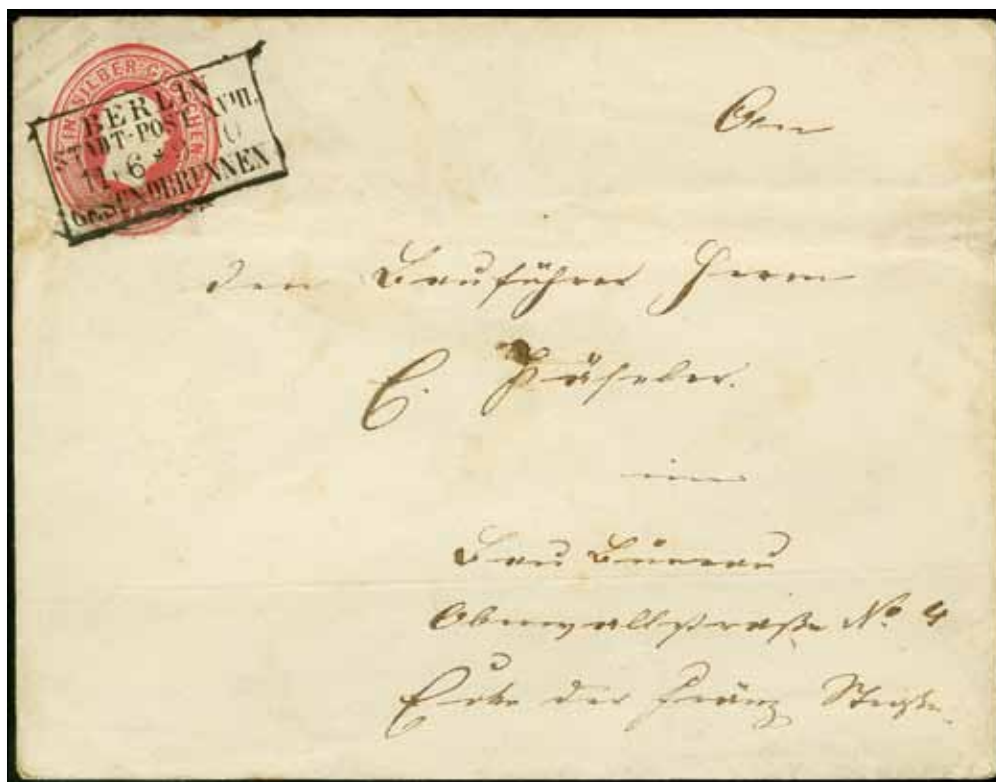 EIN SILBER-GROSCHEN
BERLIN
STADT-POST XVIII.
11 6 *
GESUNDBRUNNEN
An
den Bauführer Herrn
E. Päseler.
im
Bau Büreau
Oberwallstraße No. 4
Ecke der Franz Straße.